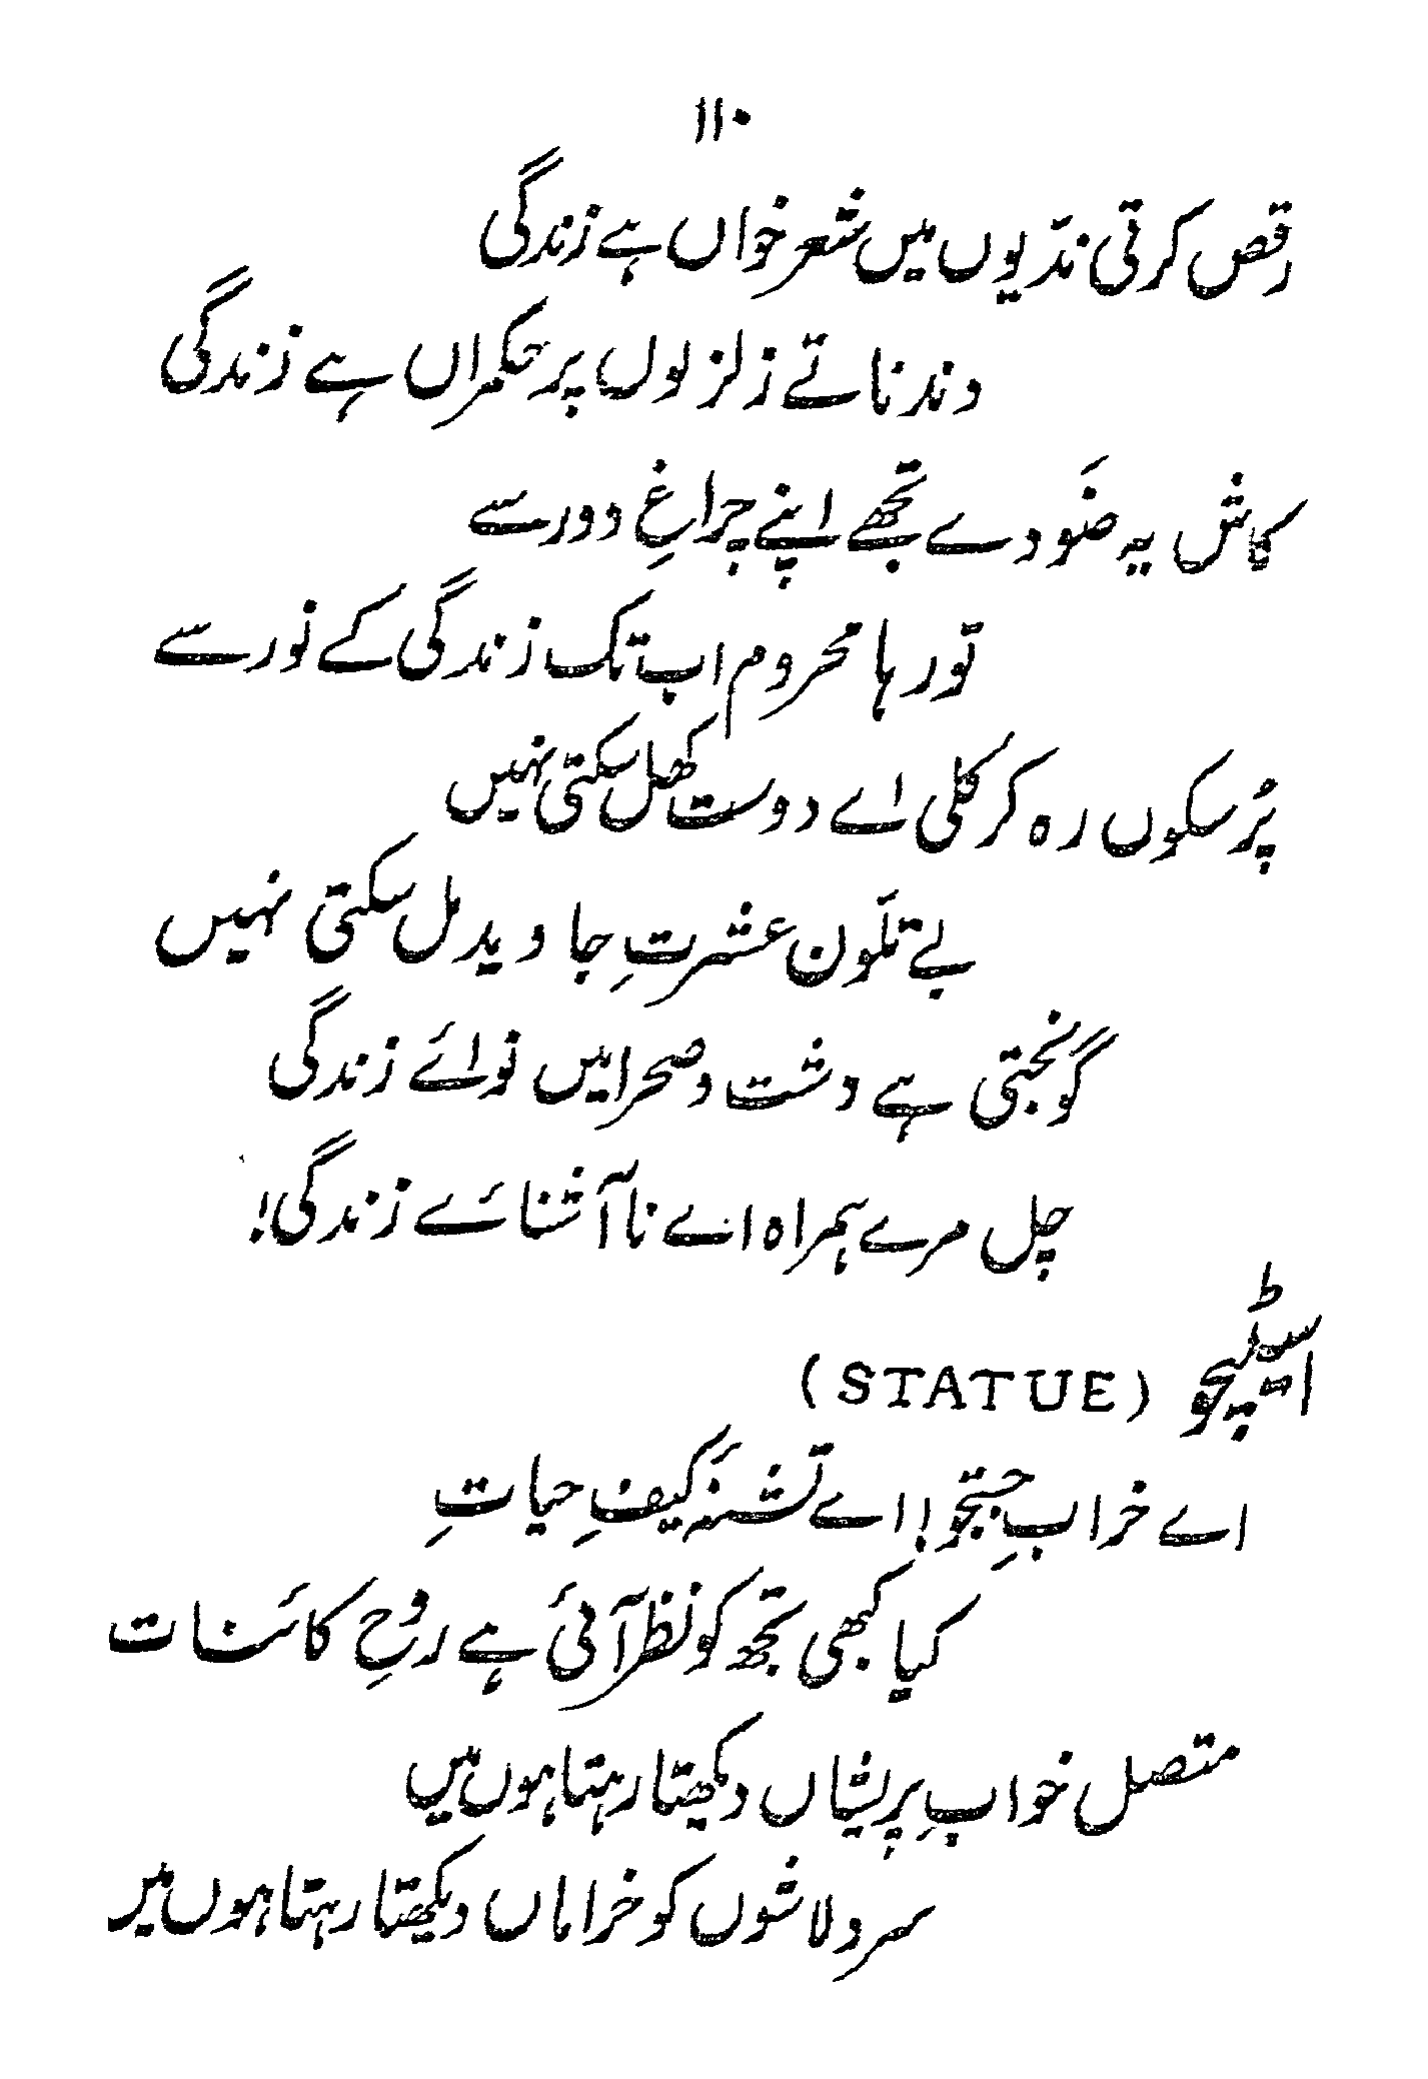 ۱۱۰
رقص کرتی ندّیوں میں شعر خواں ہے زندگی
دندناتے زلزلوں پر حکمراں ہے زندگی
کاش یہ ضَو دے تجھے اپنے چراغِ دور سے
تو رہا محروم اب تک زندگی کے نور سے
پُر سکوں رہ کر کلی اے دوست کھل سکتی نہیں
بے تلَون عشرتِ جاوید مل سکتی نہیں
گونجتی ہے دشت و صحرا میں نوائے زندگی
چل مرے ہمراہ اے ناآشنائے زندگی!
اسٹیچو (STATUE)
اے خرابِ جستجو! اے تشنۂ کیفِ حیاتِ
کیا کبھی تجھ کو نظر آئی ہے روحِ کائنات
متصل خوابِ پریشاں دیکھتا رہتا ہوں میں
سرد لاشوں کو خراماں دیکھتا رہتا ہوں میں